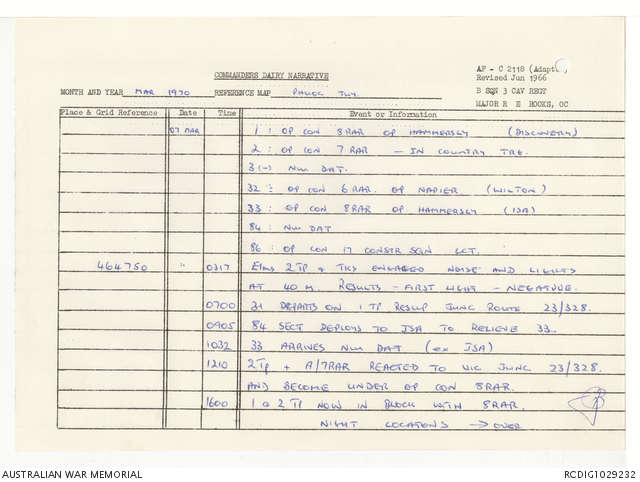 AF - C 2118 (Adapt
COMMANDERS DAIRY NARRATIVE
Revised Jun 1966
MONTH AND YEAR MAR 1970 REFERENCE MAP PHUOC TUY. B SQN 3 CAV REGT
MAJOR R E HOOKS, OC
Place & Grid Reference Date Time Event or Information
07 MAR 1 : OP CON 8 RAR OP HAMMERSLY (DISCOVERY)
2 : OP CON 7 RAR - IN COUNTRY TRG.
3(-) NUI DAT.
32 : OP CON 6 RAR. OP NAPIER (WILTON)
33 : OP CON 8 RAR OP HAMMERSLY (ISA)
84 : NUI DAT
86 : OP CON 17 CONSTR SQN LCT.
464750 " 0317 ELMS 2 TP & TKS ENGAGED NOISE AND LIGHTS
AT 40 M. RESULTS - FIRST LIGHT - NEGATIVE.
0700 31 DEPARTS ON 1 TP RESUP JUNC ROUTE 23/328.
0905 84 SECT DEPLOYS TO JSA TO RELIEVE 33.
1032 33 ARRIVES NUI DAT (ex JSA)
1210 2 Tp + A/7RAR REACTED TO VIC JUNC 23/328.
AND BECOME UNDER OP CON 8RAR.
1600 1 & 2 TP NOW IN BLOCK WITH 8RAR.
NIGHT LOCATIONS → OVER
AUSTRALIAN WAR MEMORIAL RCDIG1029232